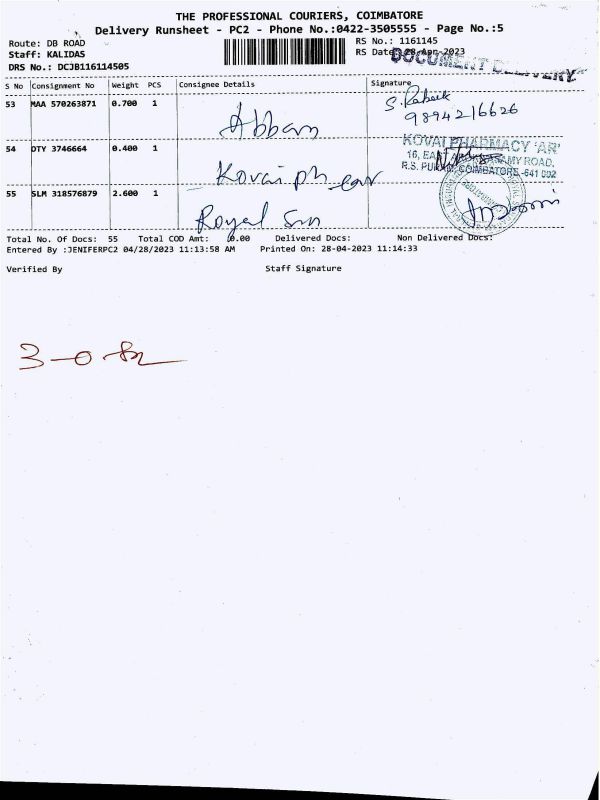 THE PROFESSIONAL COURIERS, COIMBATORE
Delivery Runsheet - PC2 - Phone No.:0422-3505555 - Page No.:5
Route: DB ROAD
Staff: KALIDAS
DRS No.: DCJB116114505
RS No.: 1161145
RS Date: 28-Apr-2023
DOCUMENT DELIVERY
S No Consignment No Weight PCS Consignee Details Signature
53 MAA 570263871 0.700 1 Abban S. Rabeek
9894216626
54 DTY 3746664 0.400 1 Kovai ph KOVAI PHARMACY 'AR'
16, ROAD,
R.S. COIMBATORE-641 002
55 SLM 318576879 2.600 1 Royal Sun
Total No. Of Docs: 55 Total COD Amt: 0.00 Delivered Docs: Non Delivered Docs:
Entered By :JENIFERPC2 04/28/2023 11:13:58 AM Printed On: 28-04-2023 11:14:33
Verified By Staff Signature
3-0